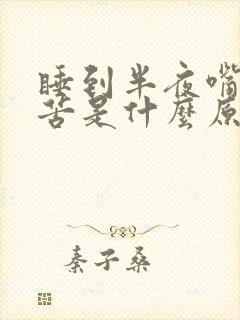 睡到半夜嘴
苦是什麼原
秦子桑